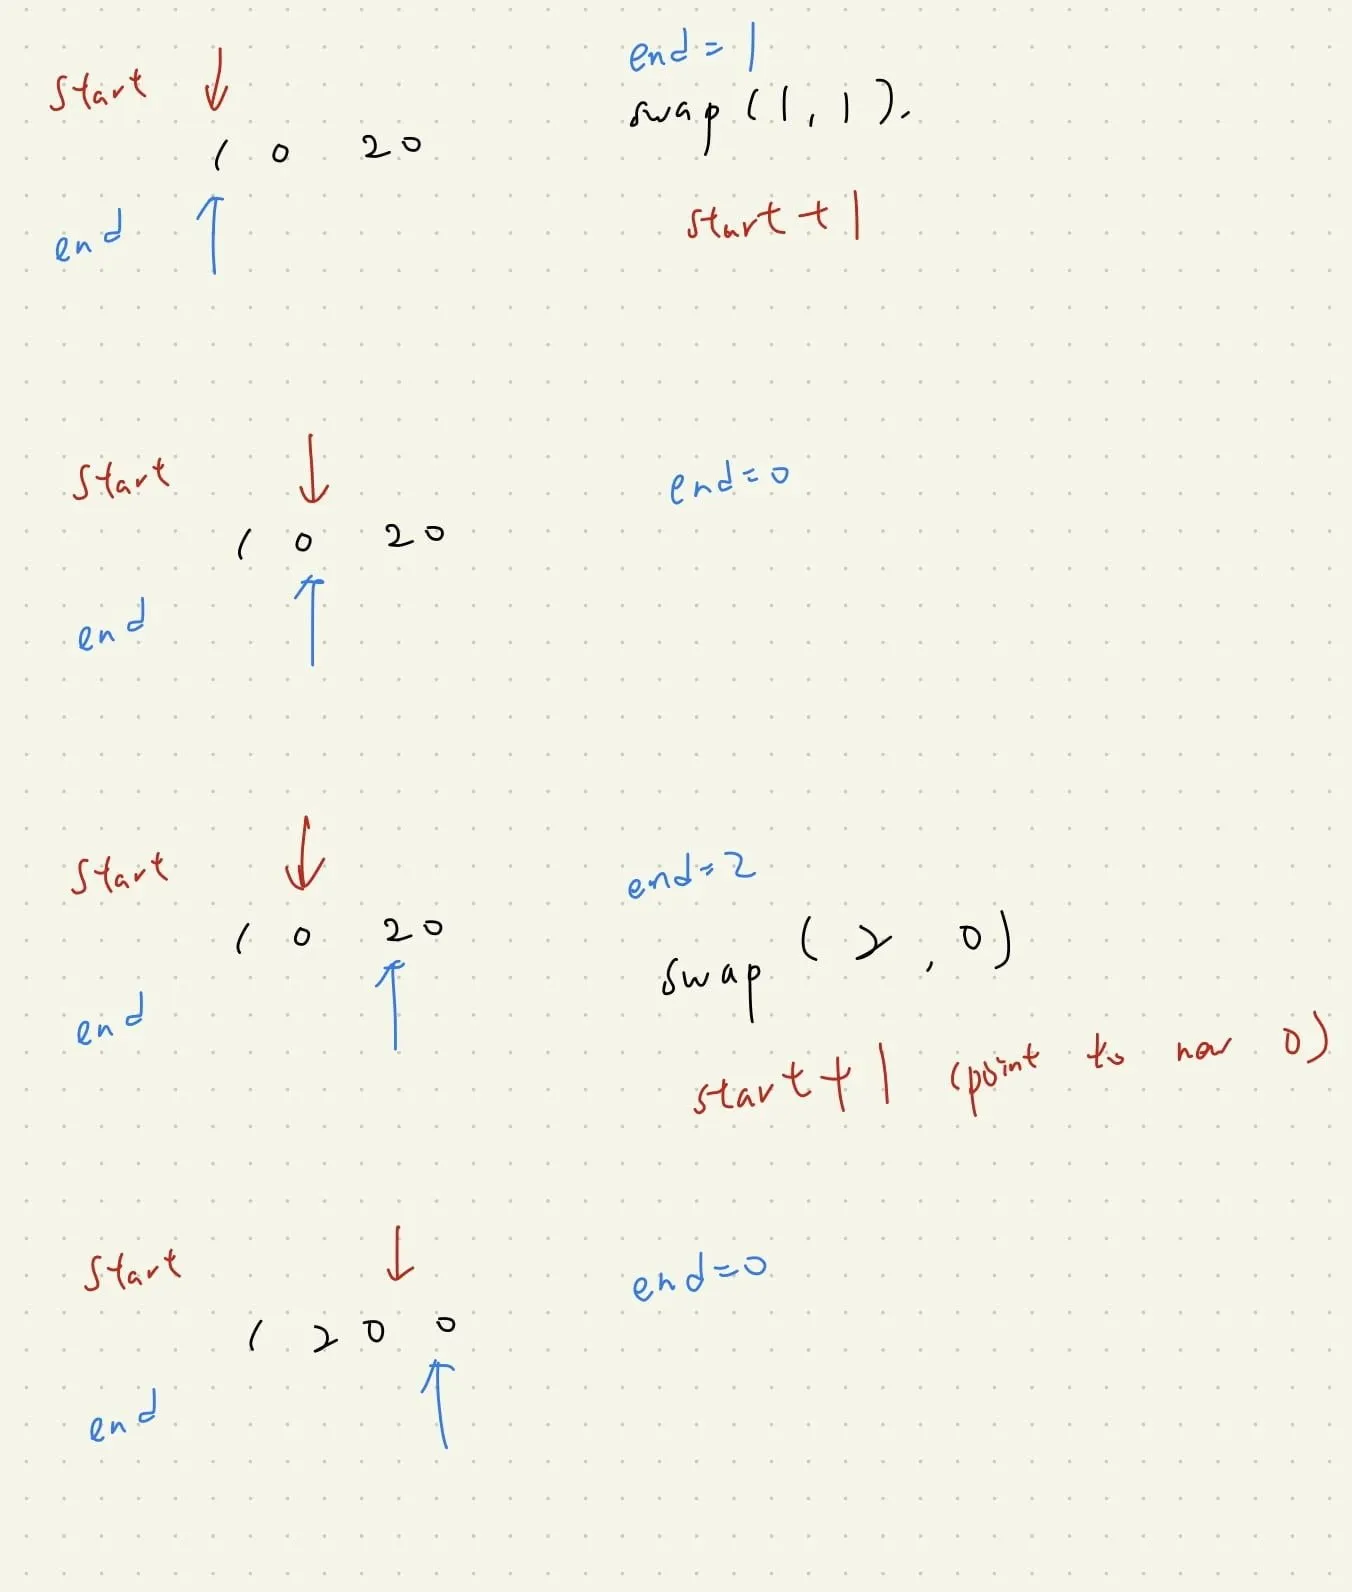 start
end = 1
swap (1, 1).
1 0 20
start + 1
end
start
end = 0
1 0 20
end
start
end = 2
1 0 20
swap (2, 0)
end
start + 1 (point to now 0)
start
end = 0
1 2 0 0
end